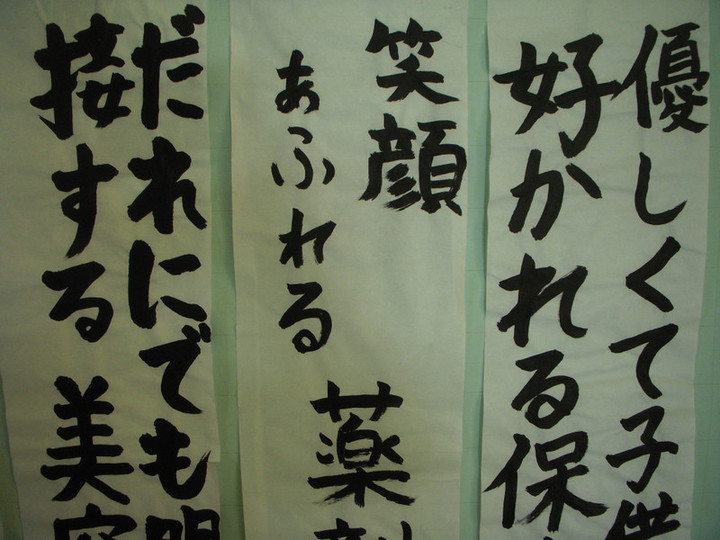 優しくて子供
好かれる保
笑顔
あふれる
薬剤
だれにでも明
接する美容